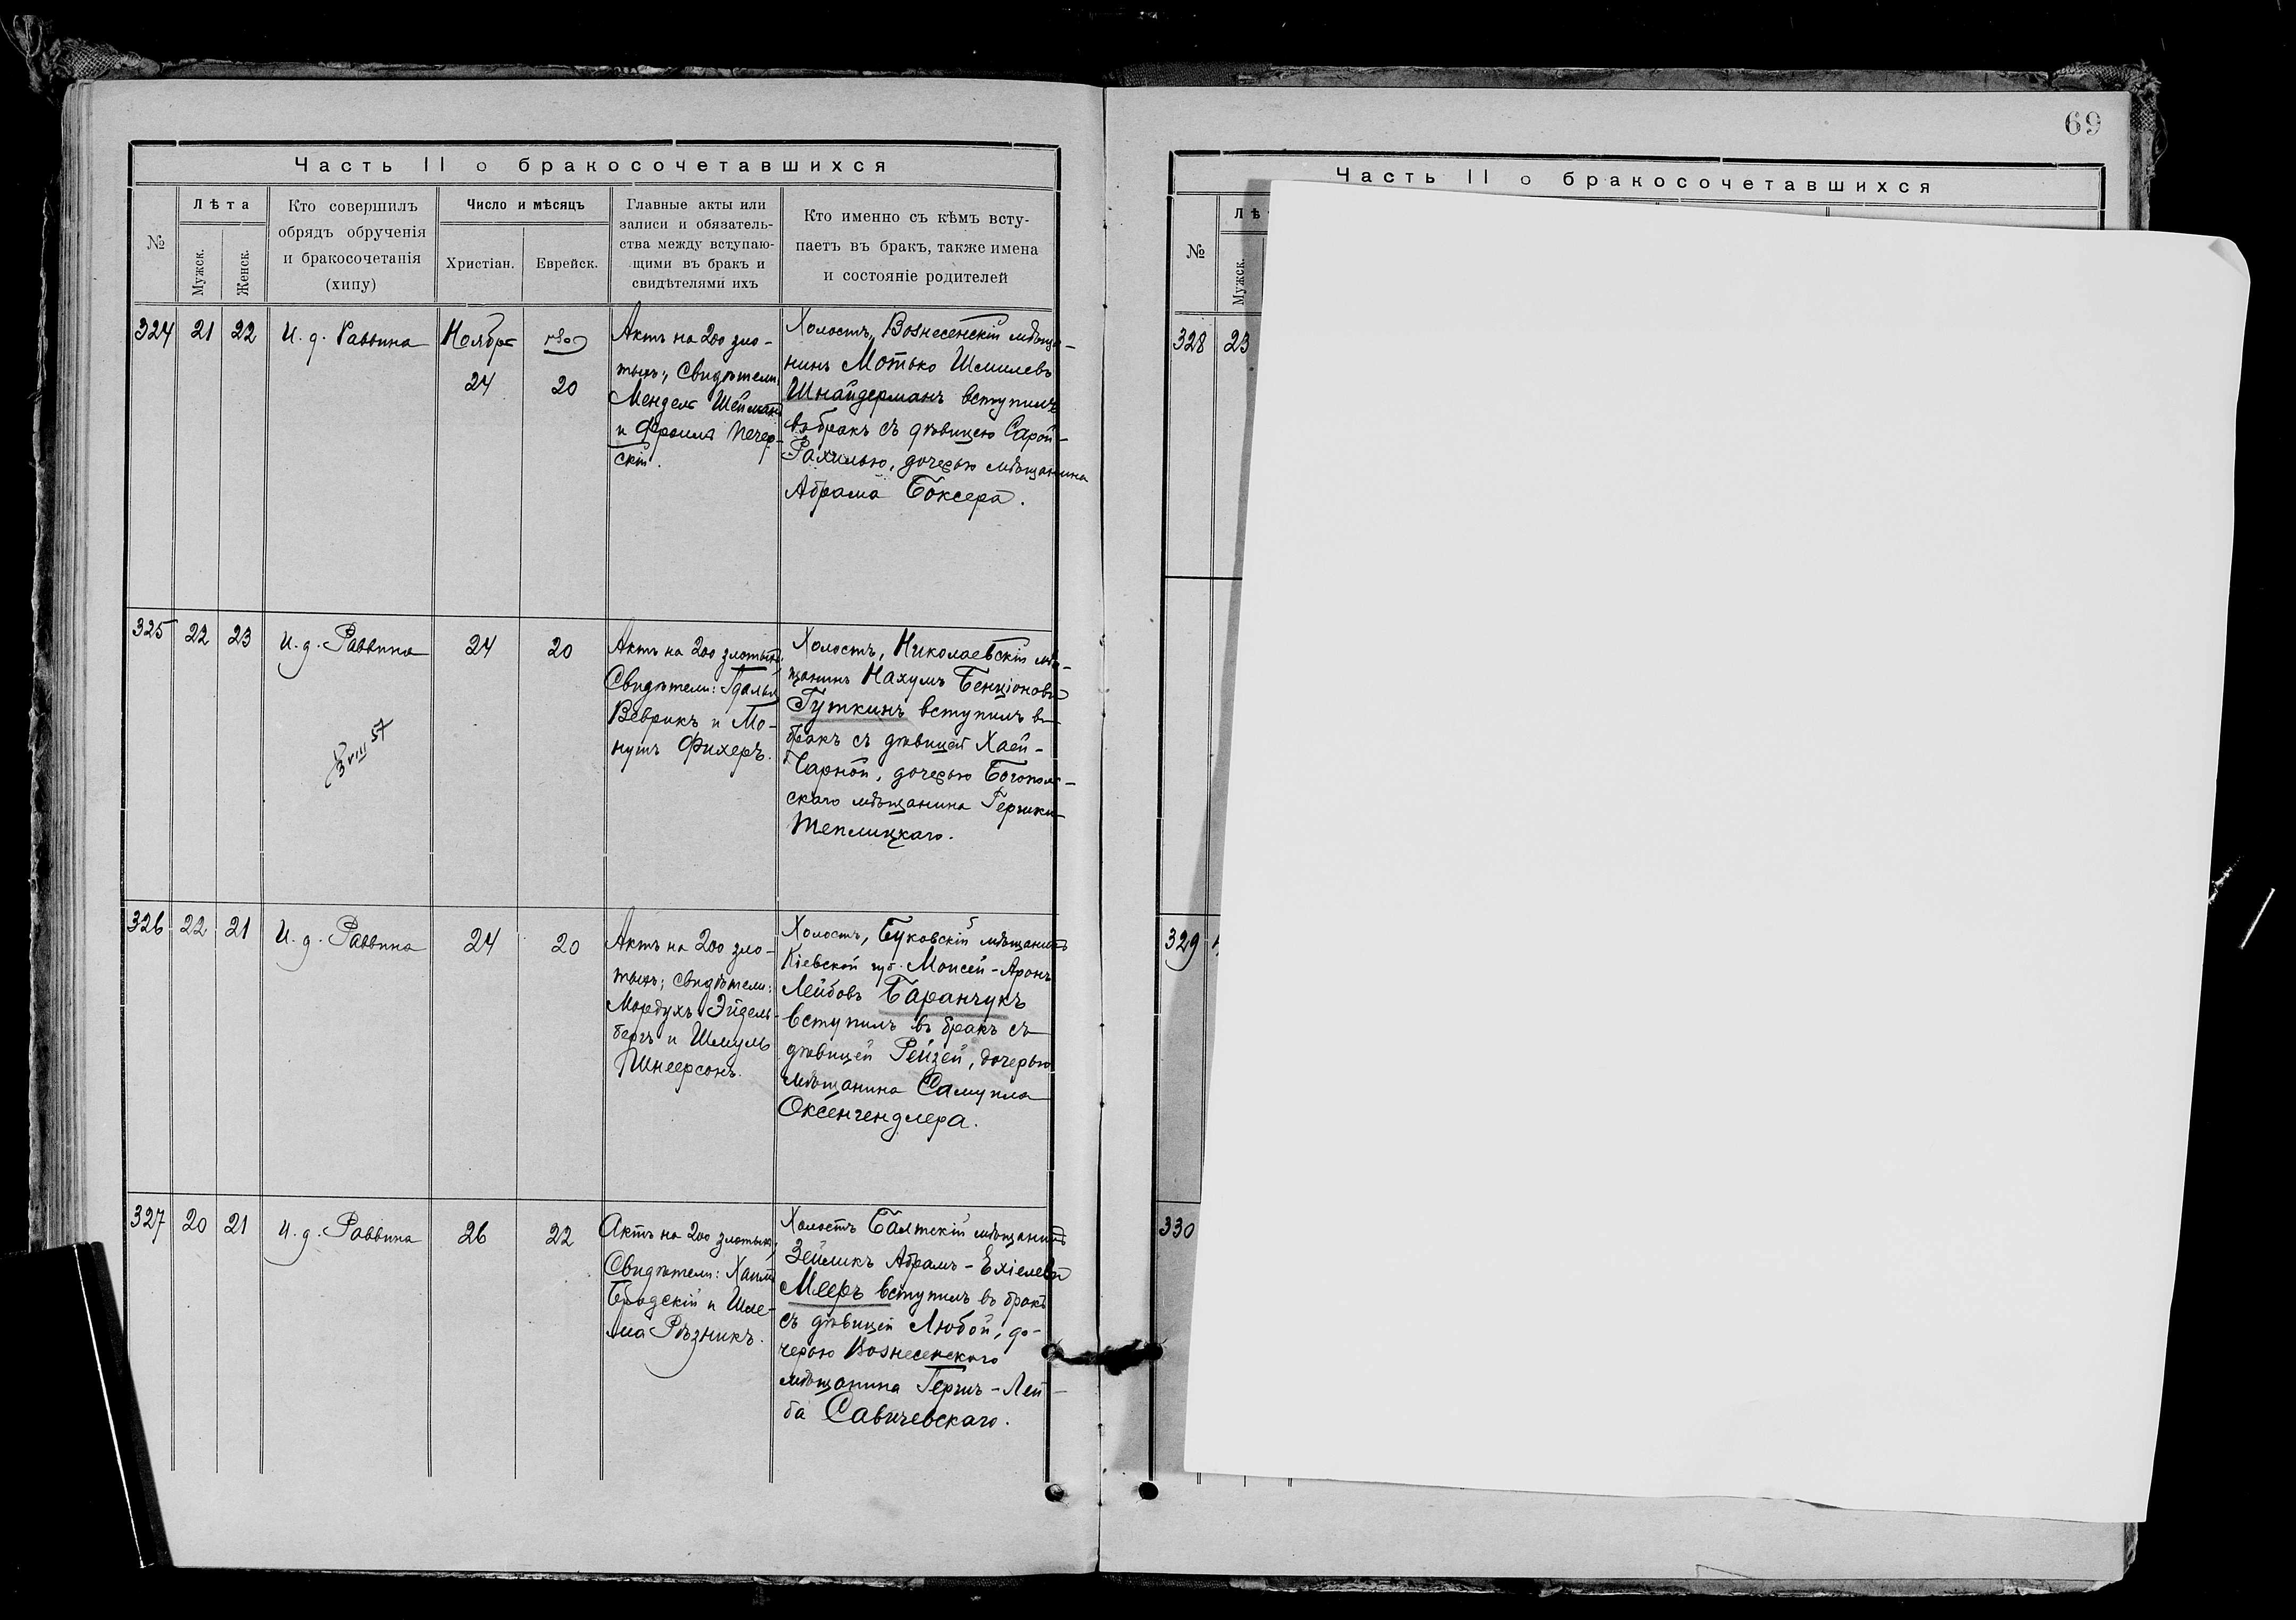 69
Часть II о бракосочетавшихся
№
Лѣта
Мужск.
Женск.
Кто совершилъ
обрядъ обрученія
и бракосочетанія
(хипу)
Число и мѣсяцъ
Христіан.
Еврейск.
Главные акты или
записи и обязатель-
ства между вступаю-
щими въ бракъ и
свидѣтелями ихъ
Кто именно съ кѣмъ всту-
паетъ въ брак, также имена
и состояніе родителей
324 21 22 И. д. Раввина
Ноября
24
20
Актъ на 200 зло-
тыхъ; Свидѣтели:
Мендель Шейман
и Фроимъ Печер-
скій.
Холостъ, Вознесенскій мѣща-
нинъ Мотько Шмилевъ
Шнайдерманъ вступилъ
въ бракъ съ дѣвицею Сарой-
Рахилью, дочерью мѣщанина
Абрама Боксера.
325 22 23 И. д. Раввина
24
20
VIII 57
Актъ на 200 злотыхъ
Свидѣтели: Гдалья
Веврикъ и Мо-
нушъ Фихеръ.
Холостъ, Николаевскій мѣ-
щанинъ Нахумъ Бенціоновъ
Гуткинъ вступилъ въ
бракъ съ дѣвицей Хаей-
Чарной, дочерью Богополь-
скаго мѣщанина Гершки
Теплицкаго.
326 22 21 И. д. Раввина
24
20
Актъ на 200 зло-
тыхъ; свидѣтели:
Мордухъ Эйдель-
бергъ и Шмуль
Шнеерсонъ.
Холостъ, Буковскій мѣщанинъ
Кіевской губ. Моисей-Аронъ
Лейбовъ Баранчукъ
вступилъ въ бракъ съ
дѣвицей Рейзей, дочерью
мѣщанина Самуила
Оксенгендлера.
327 20 21 И. д. Раввина
26
22
Актъ на 200 злотыхъ;
Свидѣтели: Хаимъ
Бродскій и Шле-
ма Рѣзникъ.
Холостъ Балтскій мѣщанинъ
Зейликъ Абрамъ-Ехіелевъ
Мееръ вступилъ въ бракъ
съ дѣвицей Любой, до-
черью Вознесенскаго
мѣщанина Гершъ-Лей-
ба Савичевскаго.
Часть II о бракосочетавшихся
№
Лѣ
Мужск.
328 23
329
330